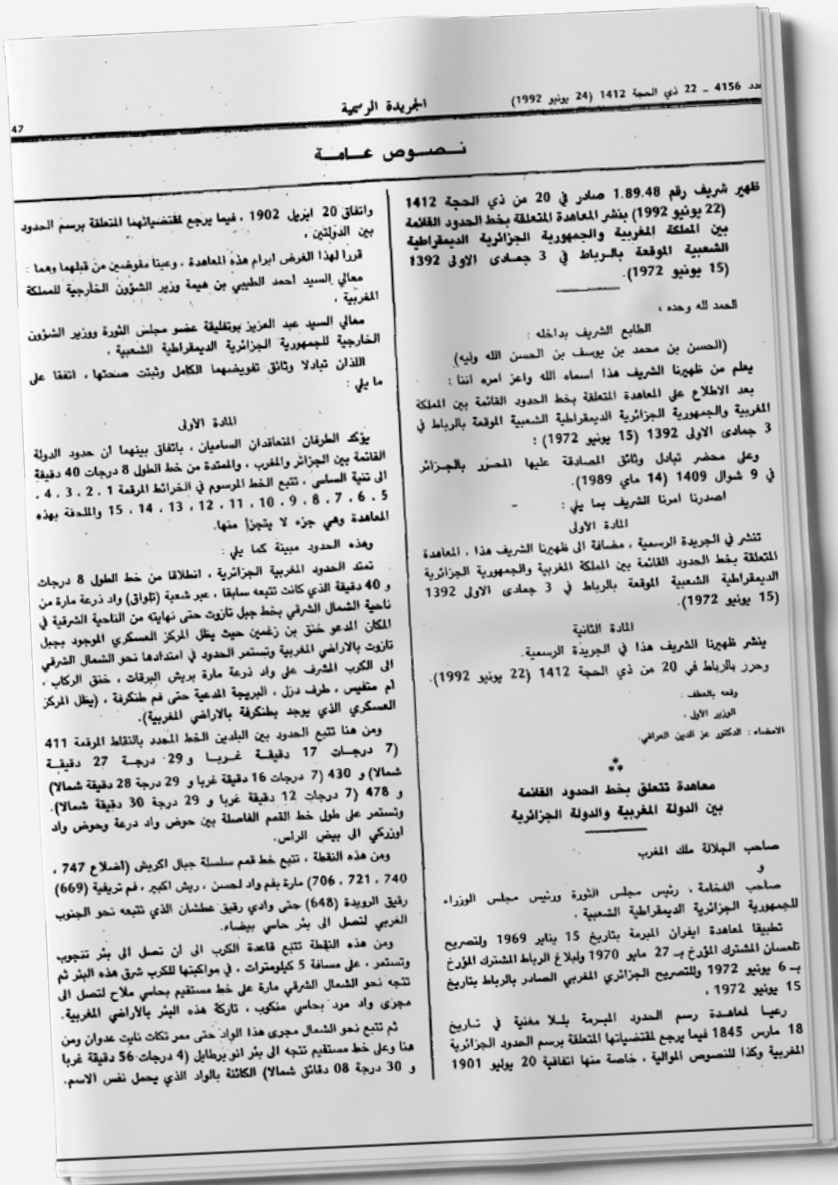 عدد 4156 – 22 ذي الحجة 1412 (24 يونيو 1992)
الجريدة الرسمية
47
نـصـوص عـامـة
ظهير شريف رقم 1.89.48 صادر في 20 من ذي الحجة 1412
(22 يونيو 1992) بنشر المعاهدة المتعلقة بخط الحدود القائمة
بين المملكة المغربية والجمهورية الجزائرية الديمقراطية
الشعبية الموقعة بالرباط في 3 جمادى الاولى 1392
(15 يونيو 1972).
الحمد لله وحده ،
الطابع الشريف بداخله :
(الحسن بن محمد بن يوسف بن الحسن الله وليه)
يعلم من ظهيرنا الشريف هذا اسماه الله واعز امره اننا :
بعد الاطلاع على المعاهدة المتعلقة بخط الحدود القائمة بين المملكة
المغربية والجمهورية الجزائرية الديمقراطية الشعبية الموقعة بالرباط في
3 جمادى الاولى 1392 (15 يونيو 1972) :
وعلى محضر تبادل وثائق المصادقة عليها المحرر بالجزائر
في 9 شوال 1409 (14 ماي 1989).
اصدرنا امرنا الشريف بما يلي :
المادة الأولى
تنشر في الجريدة الرسمية ، مضافة الى ظهيرنا الشريف هذا ، المعاهدة
المتعلقة بخط الحدود القائمة بين المملكة المغربية والجمهورية الجزائرية
الديمقراطية الشعبية الموقعة بالرباط في 3 جمادى الاولى 1392
(15 يونيو 1972).
المادة الثانية
ينشر ظهيرنا الشريف هذا في الجريدة الرسمية.
وحرر بالرباط في 20 من ذي الحجة 1412 (22 يونيو 1992).
وقعه بالعطف :
الوزير الأول ،
الامضاء : الدكتور عز الدين العراقي.
معاهدة تتعلق بخط الحدود القائمة
بين الدولة المغربية والدولة الجزائرية
صاحب الجلالة ملك المغرب
و
صاحب الفخامة ، رئيس مجلس الثورة ورئيس مجلس الوزراء
للجمهورية الجزائرية الديمقراطية الشعبية ،
تطبيقا لمعاهدة ايفران المبرمة بتاريخ 15 يناير 1969 ولتصريح
تلمسان المشترك المؤرخ بـ 27 مايو 1970 ولبلاغ الرباط المشترك المؤرخ
بـ 6 يونيو 1972 وللتصريح الجزائري المغربي الصادر بالرباط بتاريخ
15 يونيو 1972 ،
رعيا لمعاهدة رسم الحدود المبرمة بللا مغنية في تاريخ
18 مارس 1845 فيما يرجع لمقتضياتها المتعلقة برسم الحدود الجزائرية
المغربية وكذا للنصوص الموالية ، خاصة منها اتفاقية 20 يوليو 1901
واتفاق 20 ابريل 1902 ، فيما يرجع لمقتضياتهما المتعلقة برسم الحدود
بين الدولتين ،
قررا لهذا الغرض ابرام هذه المعاهدة ، وعينا مفوضين من قبلهما وهما :
معالي السيد احمد الطيبي بن هيمة وزير الشؤون الخارجية للمملكة
المغربية ،
معالي السيد عبد العزيز بوتفليقة عضو مجلس الثورة ووزير الشؤون
الخارجية للجمهورية الجزائرية الديمقراطية الشعبية ،
اللذان تبادلا وثائق تفويضهما الكامل وثبتت صحتها ، اتفقا على
ما يلي :
المادة الأولى
يؤكد الطرفان المتعاقدان الساميان ، باتفاق بينهما أن حدود الدولة
القائمة بين الجزائر والمغرب ، والممتدة من خط الطول 8 درجات 40 دقيقة
الى ثنية الساسي ، تتبع الخط المرسوم في الخرائط المرقمة 1 ، 2 ، 3 ، 4 ،
5 ، 6 ، 7 ، 8 ، 9 ، 10 ، 11 ، 12 ، 13 ، 14 ، 15 والملحقة بهذه
المعاهدة وهي جزء لا يتجزأ منها.
وهذه الحدود مبينة كما يلي :
تمتد الحدود المغربية الجزائرية ، انطلاقا من خط الطول 8 درجات
و 40 دقيقة الذي كانت تتبعه سابقا ، عبر شعبة (تلواق) واد ذرعة مارة من
ناحية الشمال الشرقي بخط جبل تازوت حتى نهايته من الناحية الشرقية في
المكان المدعو خنق بن زغمين حيث يظل المركز العسكري الموجود بجبل
تازوت بالاراضي المغربية وتستمر الحدود في امتدادها نحو الشمال الشرقي
الى الكرب المشرف على واد ذرعة مارة بريش البرقات ، خنق الركاب ،
أم منفيس ، طرف دزل ، البريجة المدعية حتى فم طنكرفة ، (يظل المركز
العسكري الذي يوجد بطنكرفة بالاراضي المغربية).
ومن هنا تتبع الحدود بين البلدين الخط المحدد بالنقاط المرقمة 411
(7 درجات 17 دقيقة غربا و 29 درجة 27 دقيقة
شمالا) و 430 (7 درجات 16 دقيقة غربا و 29 درجة 28 دقيقة شمالا)
و 478 (7 درجات 12 دقيقة غربا و 29 درجة 30 دقيقة شمالا).
وتستمر على طول خط القمم الفاصلة بين حوض واد درعة وحوض واد
اوزركي الى بيض الرأس.
ومن هذه النقطة ، تتبع خط قمم سلسلة جبال اكريش (اضلاع 747 ،
740 ، 721 ، 706) مارة بفم واد لحسن ، ريش اكبير ، فم تريفية (669)
رقيق الرويدة (648) حتى وادي رقيق عطشان الذي تتبعه نحو الجنوب
الغربي لتصل الى بئر حاسي بيضاء.
ومن هذه النقطة تتبع قاعدة الكرب الى ان تصل الى بئر تنجوب
وتستمر ، على مسافة 5 كيلومترات ، في مواكبتها للكرب شرق هذه البئر ثم
تتجه نحو الشمال الشرقي مارة على خط مستقيم بحاسي ملاح لتصل الى
مجرى واد مرد بحاسي منكوب ، تاركة هذه البئر بالأراضي المغربية.
ثم تتبع نحو الشمال مجرى هذا الواد حتى ممر تكات نايت عدوان ومن
هنا وعلى خط مستقيم تتجه الى بئر انو برطايل (4 درجات 56 دقيقة غربا
و 30 درجة 08 دقائق شمالا) الكائنة بالواد الذي يحمل نفس الاسم.